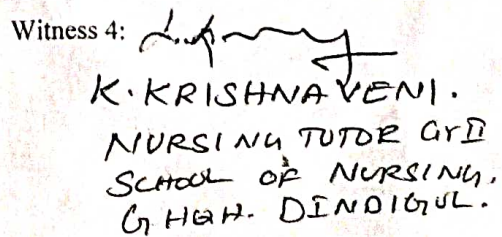 Witness 4:
K. KRISHNAVENI.
NURSING TUTOR Gr II
SCHOOL OF NURSING.
G HQH. DINDIGUL.